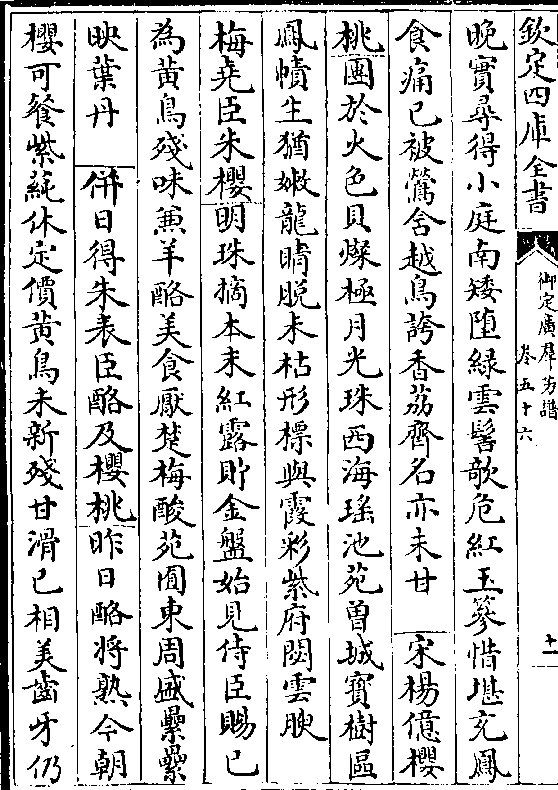 欽定四庫全書
御定廣羣芳譜
卷五十六
十一
晚實尋得小庭南矮堕綠雲髻欹危紅玉簪惜堪充鳳
食痛已被鶯含越鳥誇香荔齊名亦未甘 宋楊億櫻
桃團於火色貝燦極月光珠西海瑤池苑曾城寳樹區
鳳幘生猶嫩龍睛脱未枯形標與霞彩紫府閟雲腴
梅堯臣朱櫻明珠摘木末紅露貯金盤始見侍臣賜已
為黃鳥殘味兼羊酪美食厭楚梅酸苑囿東周盛纍纍
映葉丹 併日得朱表臣酪及櫻桃昨日酪將熟今朝
櫻可餐紫蒓休定價黃鳥未新殘甘滑已相美齒牙仍